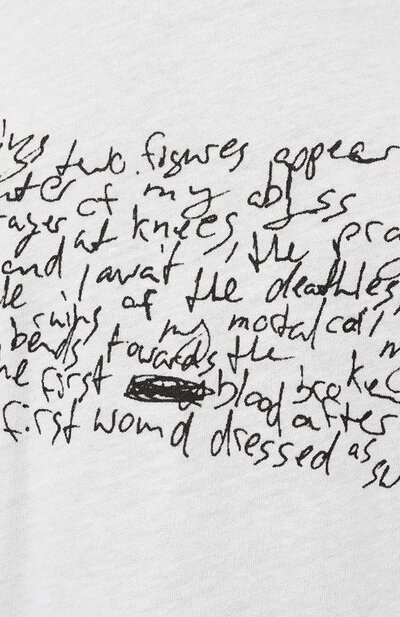 two figures appear
of my abyss
at knees, the
and I await the deathless
ruins of my mortal coil
bends towards the
first blood broken
first wound dressed as